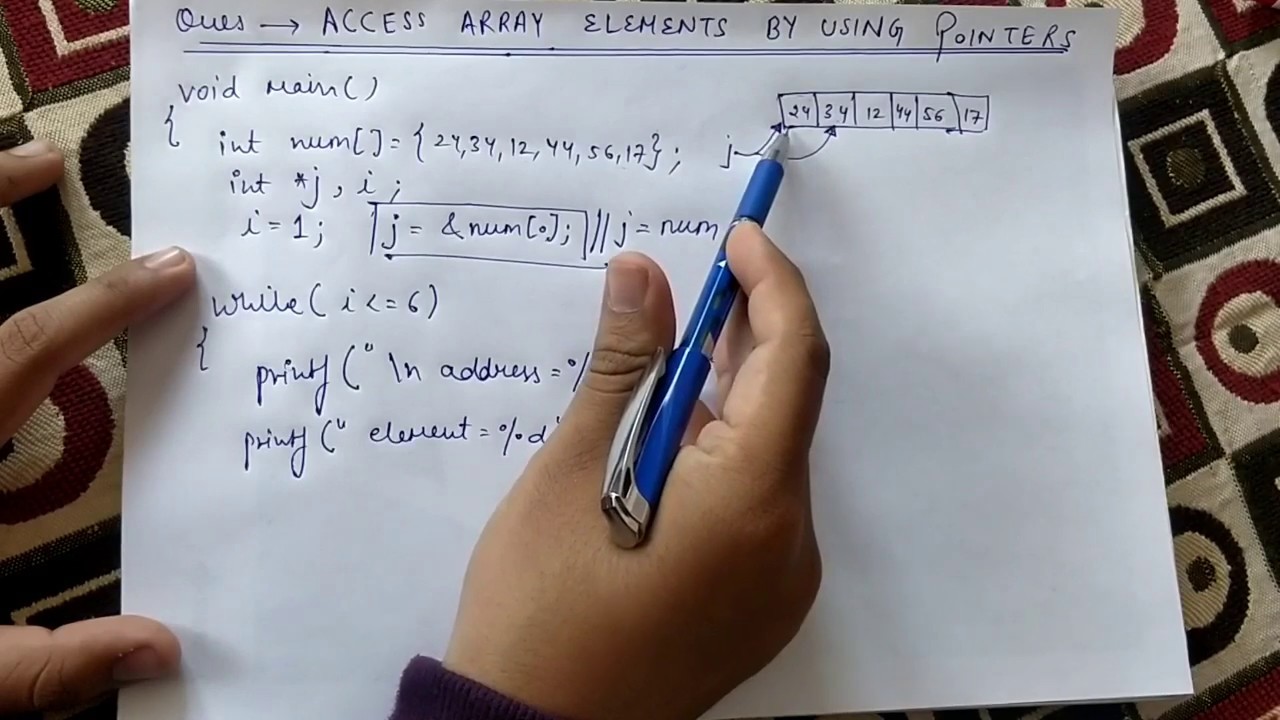 Ques → ACCESS ARRAY ELEMENTS BY USING POINTERS
void main()
{
int num[] = {24,34,12,44,56,17};
int *j, i;
i = 1; j = &num[0]; // j = num
while( i <= 6)
{
printf (" \n address = %
printf (" element = %d"
24 34 12 44 56 17
j